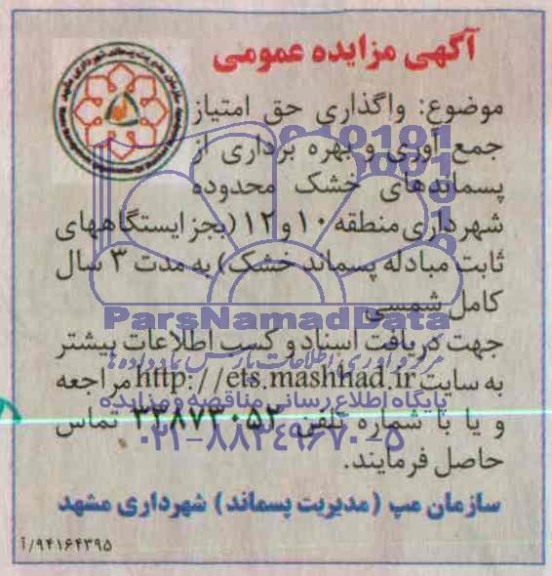 آگهی مزایده عمومی
موضوع: واگذاری حق امتیاز
جمع آوری و بهره برداری از
پسماندهای خشک محدوده
شهرداری منطقه ۱۰ و ۱۲ (بجز ایستگاههای
ثابت مبادله پسماند خشک) به مدت ۳ سال
کامل شمسی
ParsNamadData
جهت دریافت اسناد و کسب اطلاعات بیشتر
مرکز فرآوری اطلاعات پارس نماد داده ها
به سایت http://ets.mashhad.ir مراجعه
پایگاه اطلاع رسانی مناقصه و مزایده
و یا با شماره تلفن ۳۳۸۷۳۰۵۲ تماس
۰۲۱-۸۸۳۴۹۶۷۰-۵
حاصل فرمایند.
سازمان مپ (مدیریت پسماند) شهرداری مشهد
۹۴۱۶۴۳۹۵/آ